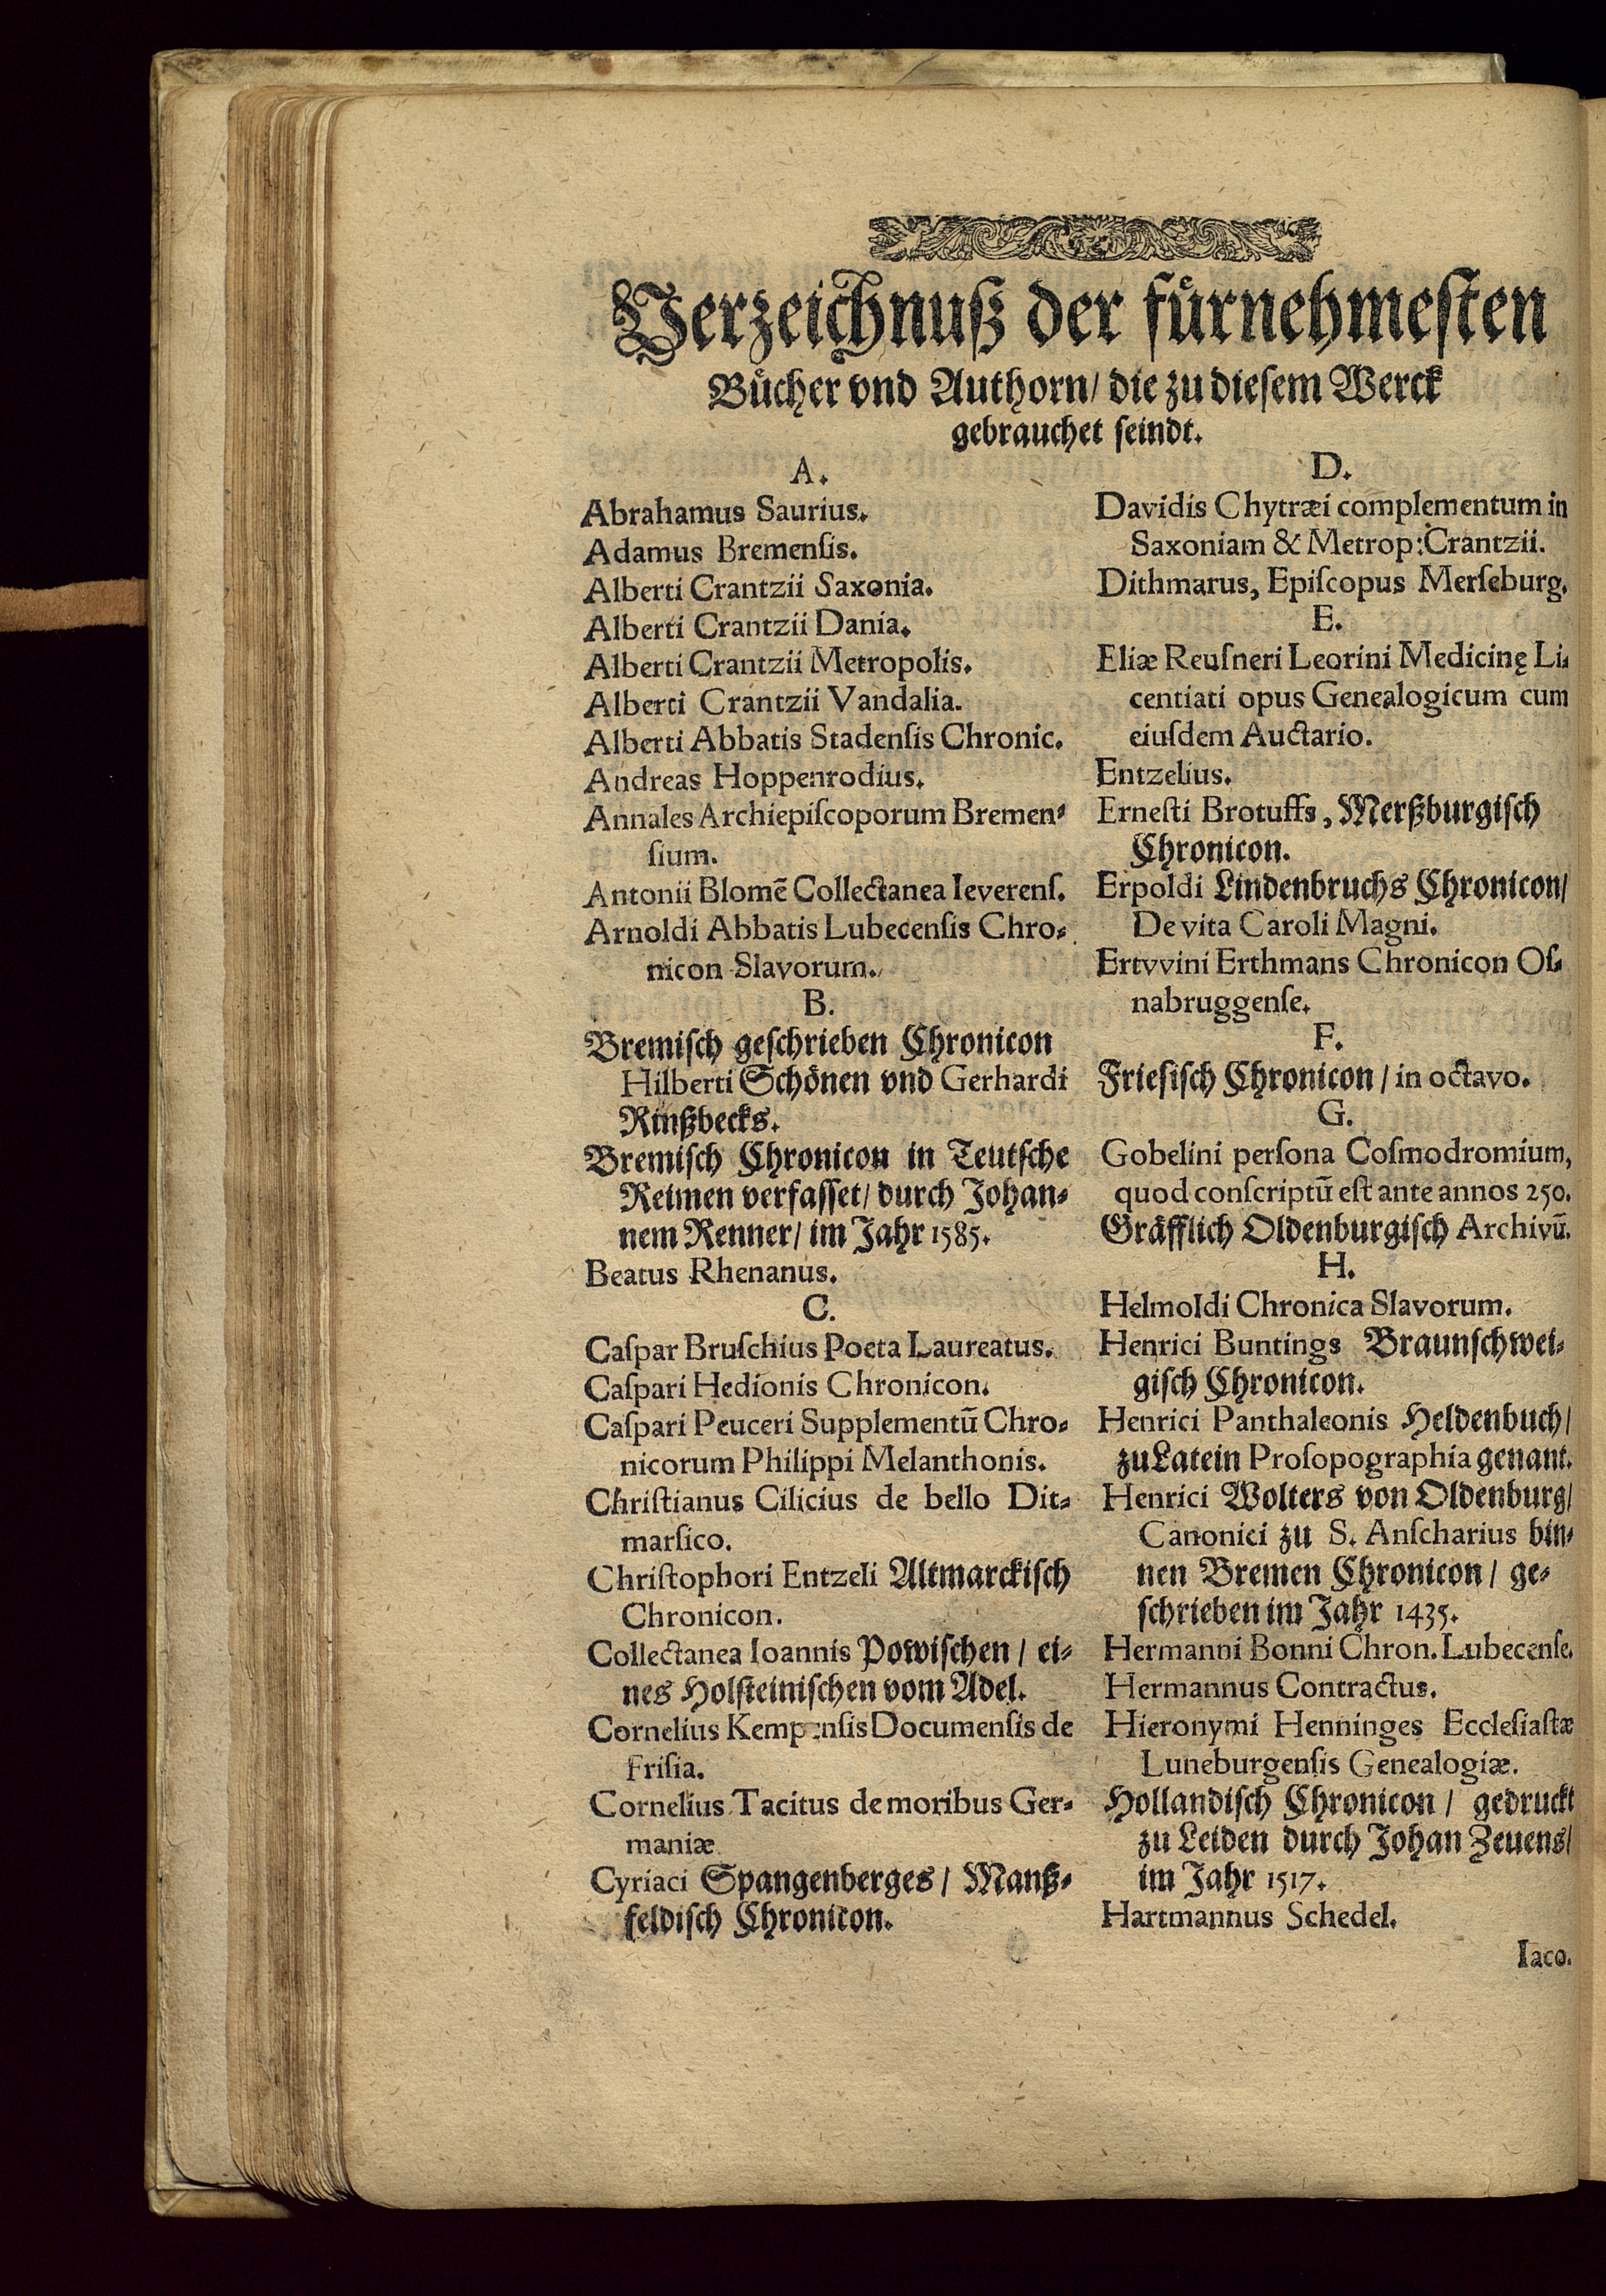 Verzeichnuß der fürnehmesten
Bücher vnd Authorn/ die zu diesem Werck
gebrauchet seindt.
A.
Abrahamus Saurius.
Adamus Bremenſis.
Alberti Crantzii Saxonia.
Alberti Crantzii Dania.
Alberti Crantzii Metropolis.
Alberti Crantzii Vandalia.
Alberti Abbatis Stadenſis Chronic.
Andreas Hoppenrodius.
Annales Archiepiſcoporum Bremen-
ſium.
Antonii Blomē Collectanea Ieverenſ.
Arnoldi Abbatis Lubecenſis Chro-
nicon Slavorum.
B.
Bremiſch geſchrieben Chronicon
Hilberti Schönen vnd Gerhardi
Rinßbecks.
Bremiſch Chronicon in Teutſche
Reimen verfaſſet/ durch Johan-
nem Renner/ im Jahr 1585.
Beatus Rhenanus.
C.
Caſpar Bruſchius Poeta Laureatus.
Caſpari Hedionis Chronicon.
Caſpari Peuceri Supplementū Chro-
nicorum Philippi Melanthonis.
Chriſtianus Cilicius de bello Dit-
marſico.
Chriſtophori Entzeli Altmarckiſch
Chronicon.
Collectanea Ioannis Powiſchen/ ei-
nes Holſteiniſchen vom Adel.
Cornelius Kempenſis Documenſis de
Friſia.
Cornelius Tacitus de moribus Ger-
maniæ
Cyriaci Spangenberges/ Manß-
feldiſch Chronicon.
D.
Davidis Chytræi complementum in
Saxoniam & Metrop: Crantzii.
Dithmarus, Epiſcopus Merſeburg.
E.
Eliæ Reuſneri Leorini Medicinę Li-
centiati opus Genealogicum cum
eiuſdem Auctario.
Entzelius.
Erneſti Brotuffs, Merßburgiſch
Chronicon.
Erpoldi Lindenbruchs Chronicon/
De vita Caroli Magni.
Ertvvini Erthmans Chronicon Oſ-
nabruggenſe.
F.
Frieſiſch Chronicon/ in octavo.
G.
Gobelini perſona Coſmodromium,
quod conſcriptū eſt ante annos 250.
Gräfflich Oldenburgiſch Archivū.
H.
Helmoldi Chronica Slavorum.
Henrici Buntings Braunſchwei-
giſch Chronicon.
Henrici Panthaleonis Heldenbuch/
zu Latein Proſopographia genant.
Henrici Wolters von Oldenburg/
Canonici zu S. Anſcharius bin-
nen Bremen Chronicon/ ge-
ſchrieben im Jahr 1435.
Hermanni Bonni Chron. Lubecenſe.
Hermannus Contractus.
Hieronymi Henninges Eccleſiaſtæ
Luneburgenſis Genealogiæ.
Hollandiſch Chronicon/ gedruckt
zu Leiden durch Johan Zeuens/
im Jahr 1517.
Hartmannus Schedel.
Iaco.